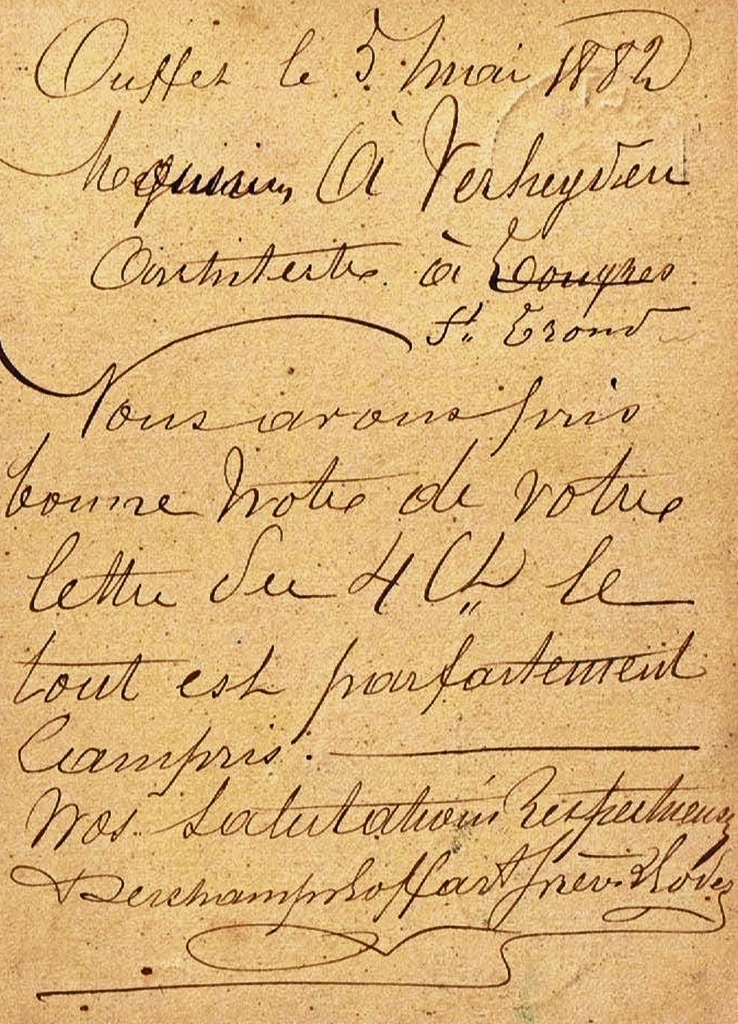 Ouffet le 5 mai 1882
Monsieur A Verheyden
Architecte à Tongres
St. Trond
Nous avons pris
bonne Note de votre
lettre du 4 Ct le
tout est parfaitement
Compris.
Nos Salutations Respectueuses